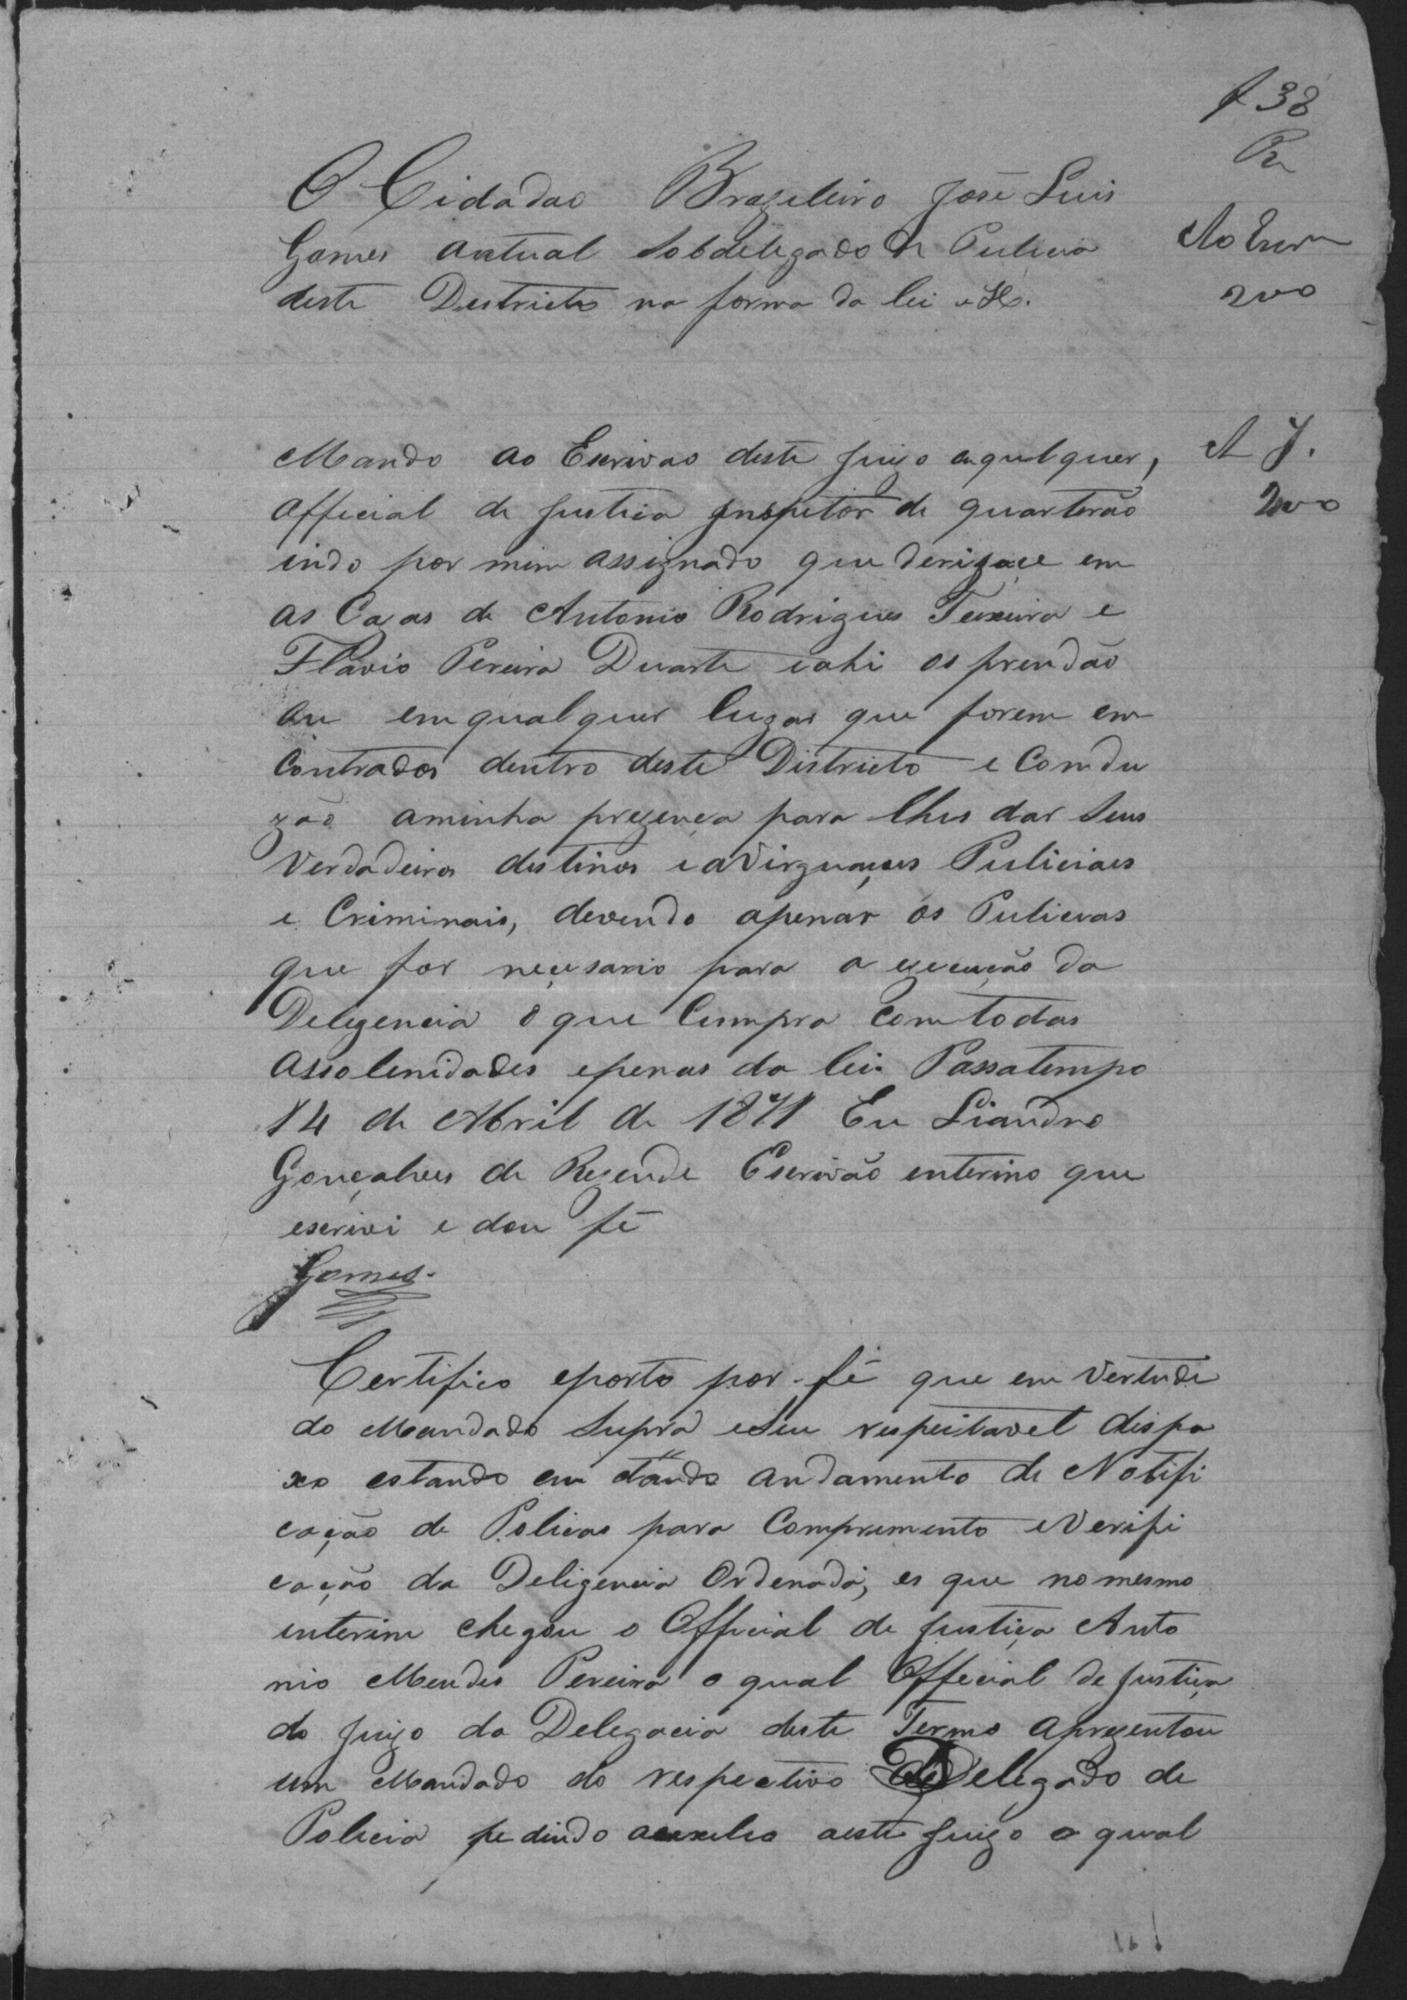 f 38
O Cidadao Brazileiro José Luis
Gomes autual Sobdelegado de Pulicia
deste Destricto na forma da lei etc.
Ao Escrm
200
Mando ao Escrivao deste juizo aqulquer,
Official de Justica Inspetor de quarterão
indo por mim assignado que derigace em
as Casas de Antonio Rodrigues Teixeira e
Flavio Pereira Duarte eahi os prendão
ou emqualquer lugar que forem em
contrados dentro deste Districto e Comdu
zão aminha prezença para lhes dar seus
Verdadeiros destinos
Puliciaes
e Criminais, devendo apenár os Pulicias
que for neçesario para a ezecução da
Deligencia o que Cumpra comtodas
assolenidades epenas da lei Passatempo
14 de Abril de 1871 Eu Liandro
Gonçalves de Rezende Escrivão enterino que
escrivi e dou fé
Gomes.
A J.
200
Certifico eporto por fé que em Vertude
do Mandado Supra eSeu respeitavel dispa
xo estando em dando andamento de Notifi
cação de Policas para Compremento eVerifi
cação da Deligencia Ordenada, es que nomesmo
interim chegou o Official de Justiça Anto
nio Mendes Pereira o qual Official de Justiça
do juizo da Delegacia deste Termo aprezentou
um Mandado do respectivo Delegado de
Policia pedindo auxelio aeste juizo o qual